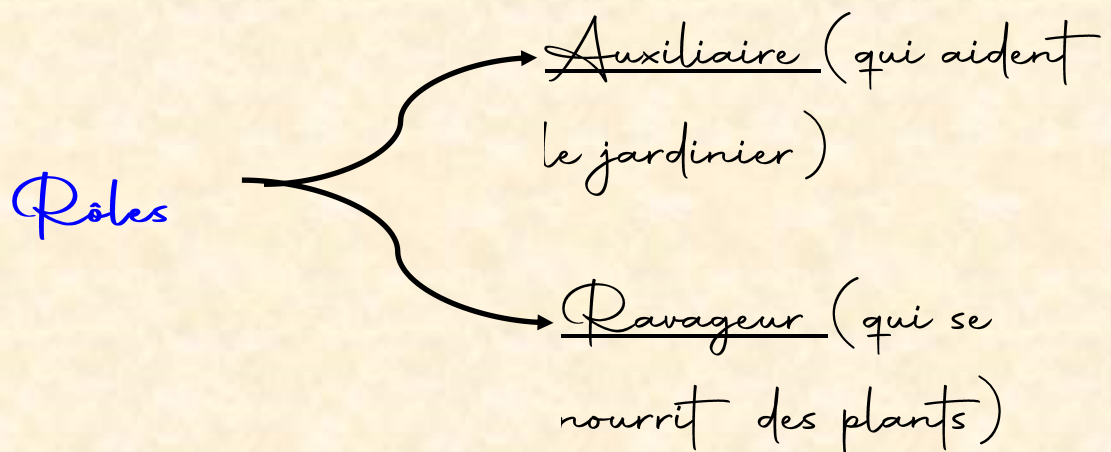 Auxiliaire (qui aident
le jardinier)
Rôles
Ravageur (qui se
nourrit des plants)